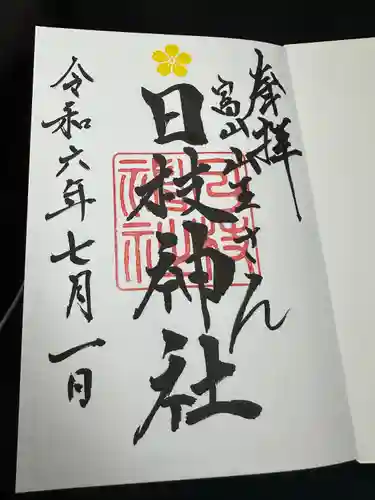 奉拝
富山山王さん
日枝神社
令和六年七月一日
日枝神社